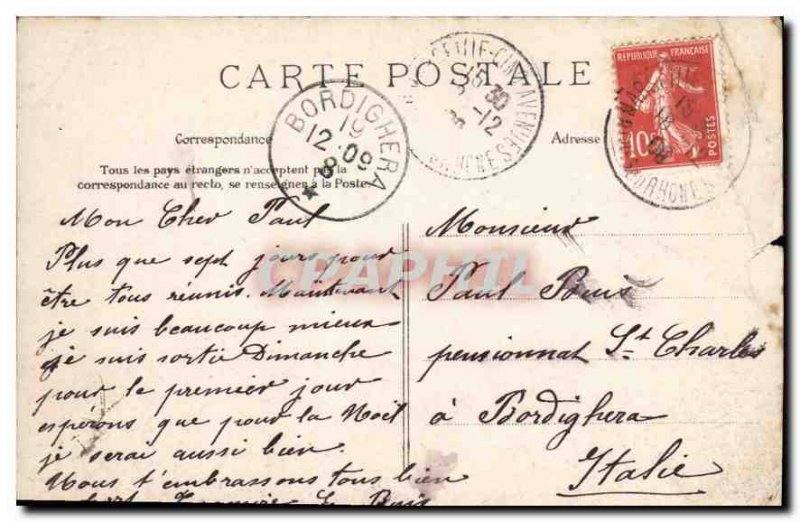 CARTE POSTALE
Correspondance
Adresse
Tous les pays étrangers n'acceptent pas la
correspondance au recto, se renseigner à la Poste.
BORDIGHERA
19
12.09
8
30
12
REPUBLIQUE FRANÇAISE
10c
POSTES
Mon Cher Paul
Plus que sept jours pour
être tous réunis. Maintenant
je suis beaucoup mieux
je suis sortie Dimanche
pour le premier jour
espérons que pour la Noël
je serai aussi bien.
Nous t'embrassons tous bien
Monsieur
Paul
pensionnat St Charles
à Bordighera
Italie
CPAPHIL